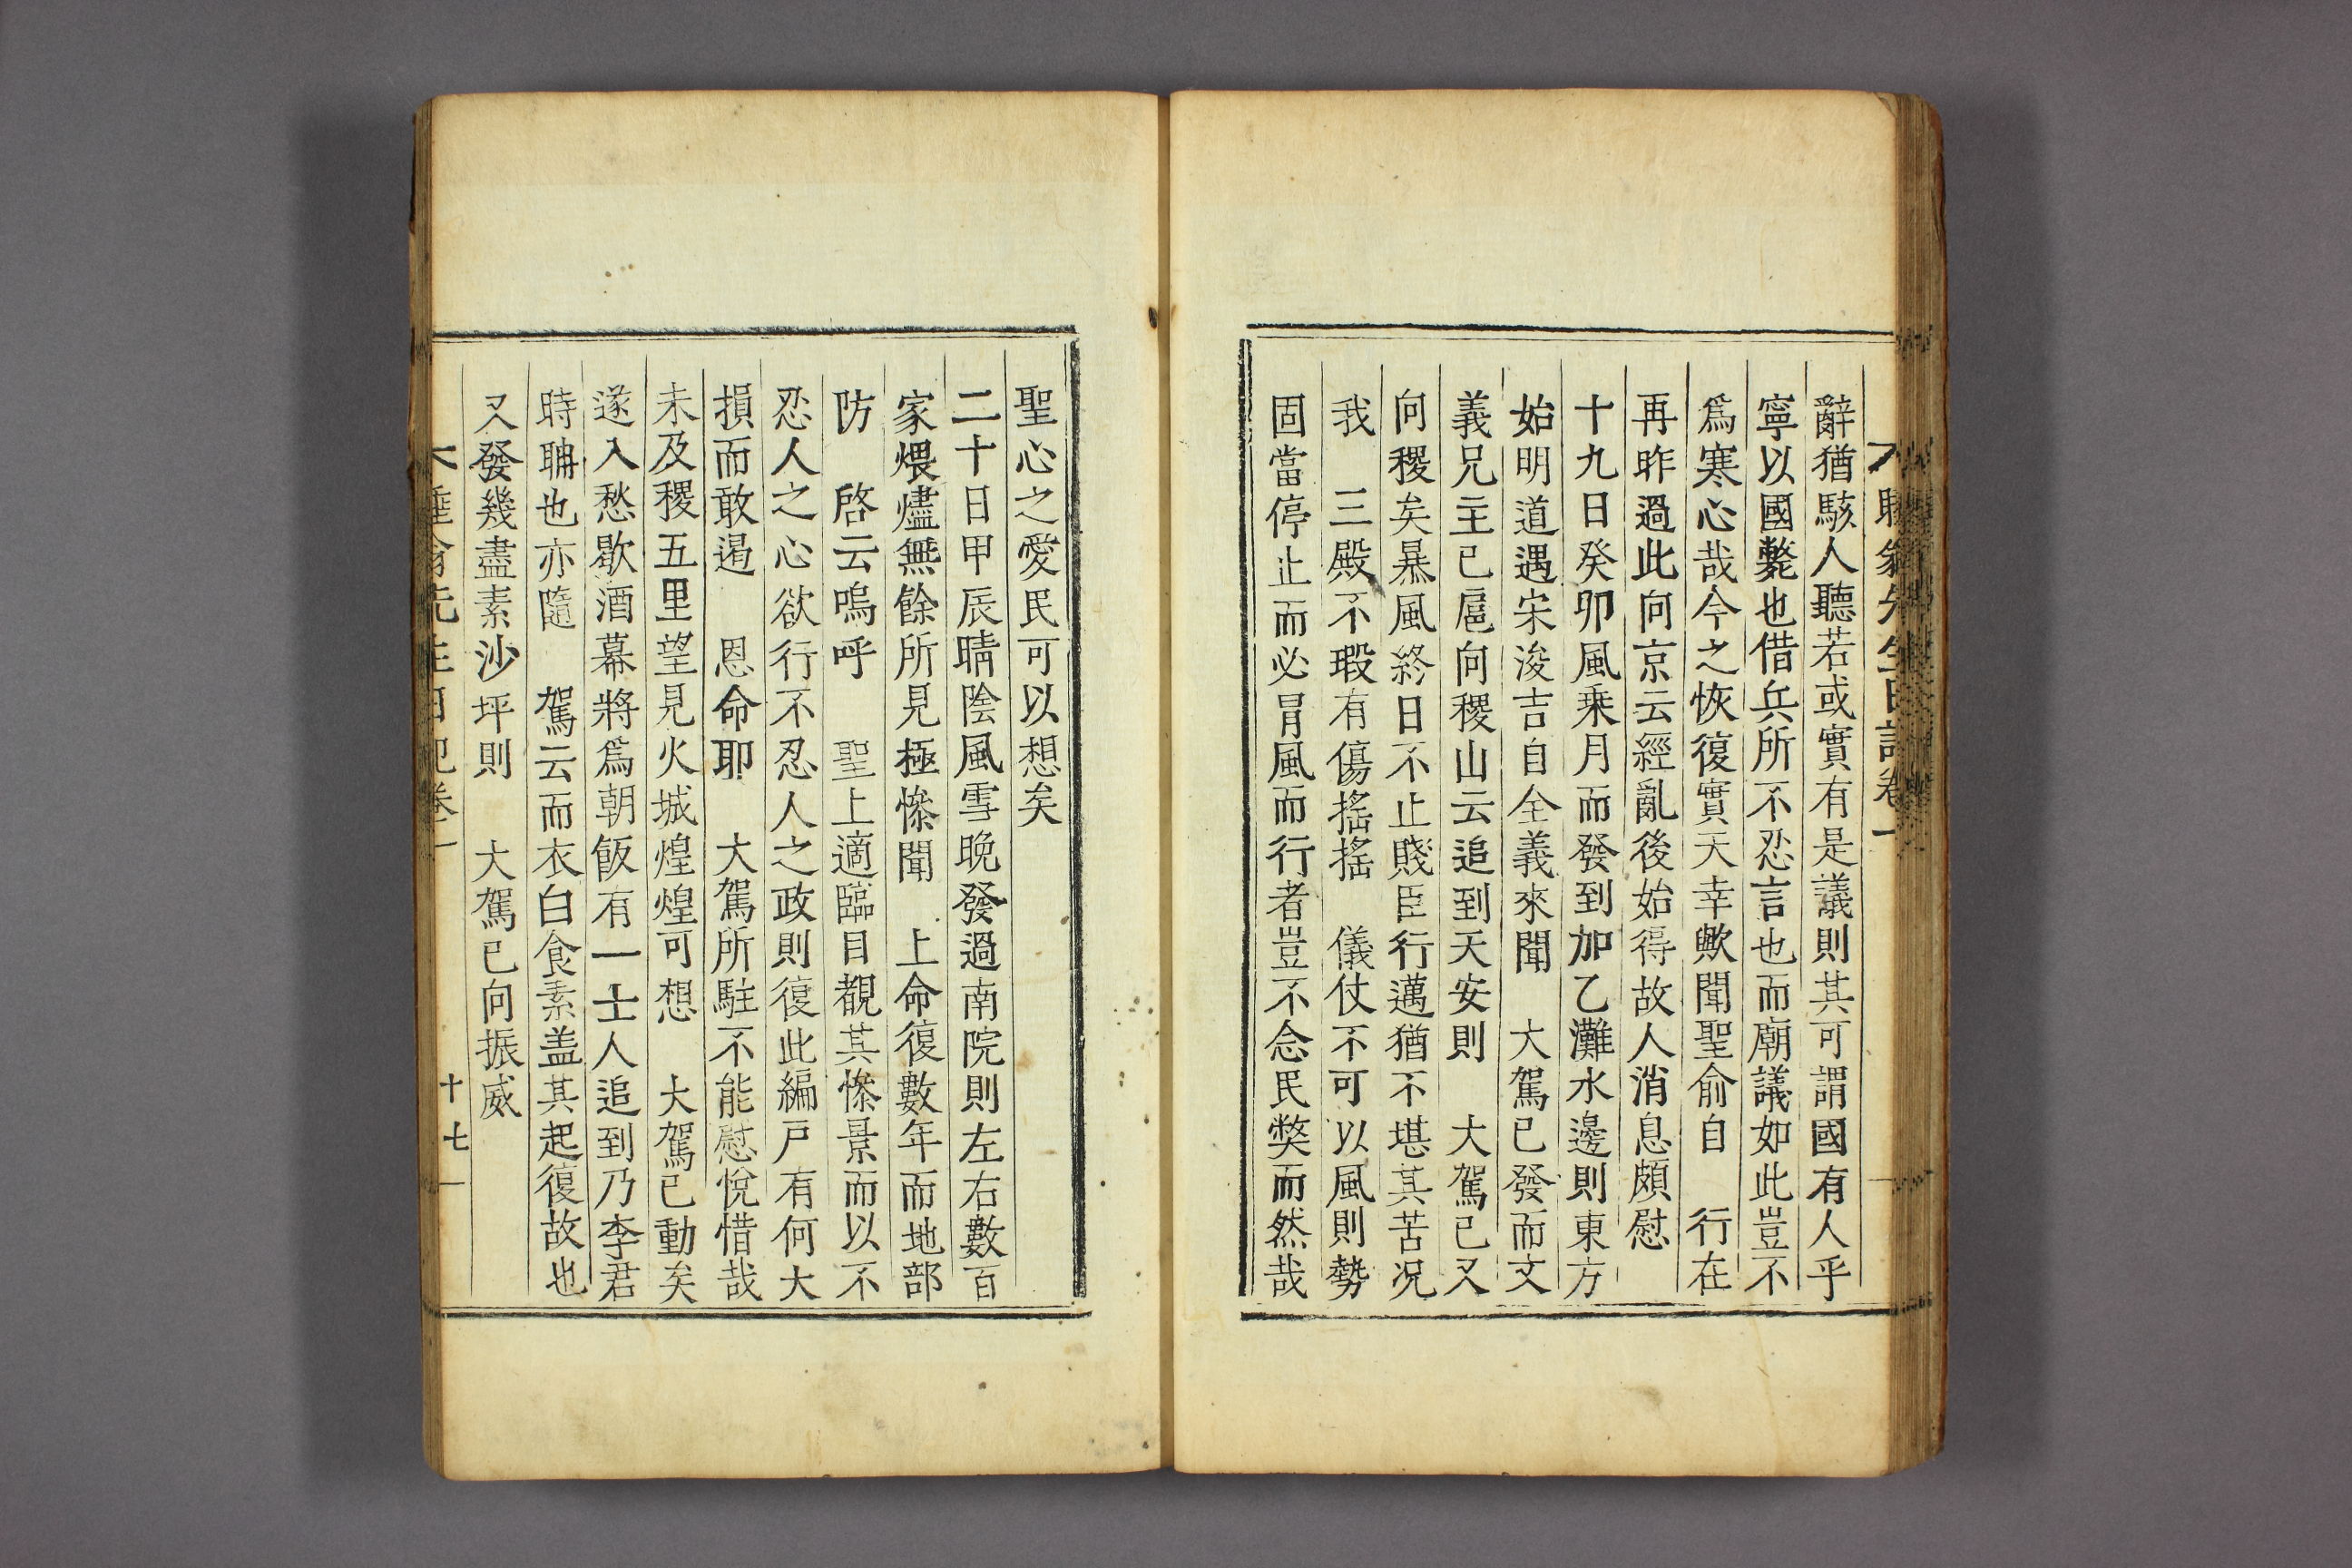 辭猶駭人聽若或實有是議則其可謂國有人乎
寧以國斃也借兵所不忍言也而廟議如此豈不
爲寒心哉今之恢復實天幸歟聞聖俞自　行在
再昨過此向京云經亂後始得故人消息頗慰
十九日癸卯風乘月而發到加乙灘水邊則東方
始明道遇宋浚吉自全義來聞　大駕已發而文
義兄主已扈向稷山云追到天安則　大駕已又
向稷矣暴風終日不止賤臣行邁猶不堪其苦况
我　三殿不瑕有傷搖搖　儀仗不可以風則勢
固當停止而必冒風而行者豈不念民獘而然哉
聖心之愛民可以想矣
二十日甲辰晴陰風雪晩發過南院則左右數百
家煨燼無餘所見極慘聞　上命復數年而地部
防　啓云嗚呼　聖上適臨目覩其慘景而以不
忍人之心欲行不忍人之政則復此編戸有何大
損而敢遏　恩命耶　大駕所駐不能慰悅惜哉
未及稷五里望見火城煌煌可想　大駕已動矣
遂入愁歇酒幕將爲朝飯有一士人追到乃李君
時聃也亦隨　駕云而衣白食素盖其起復故也
又發幾盡素沙坪則　大駕已向振威
十七